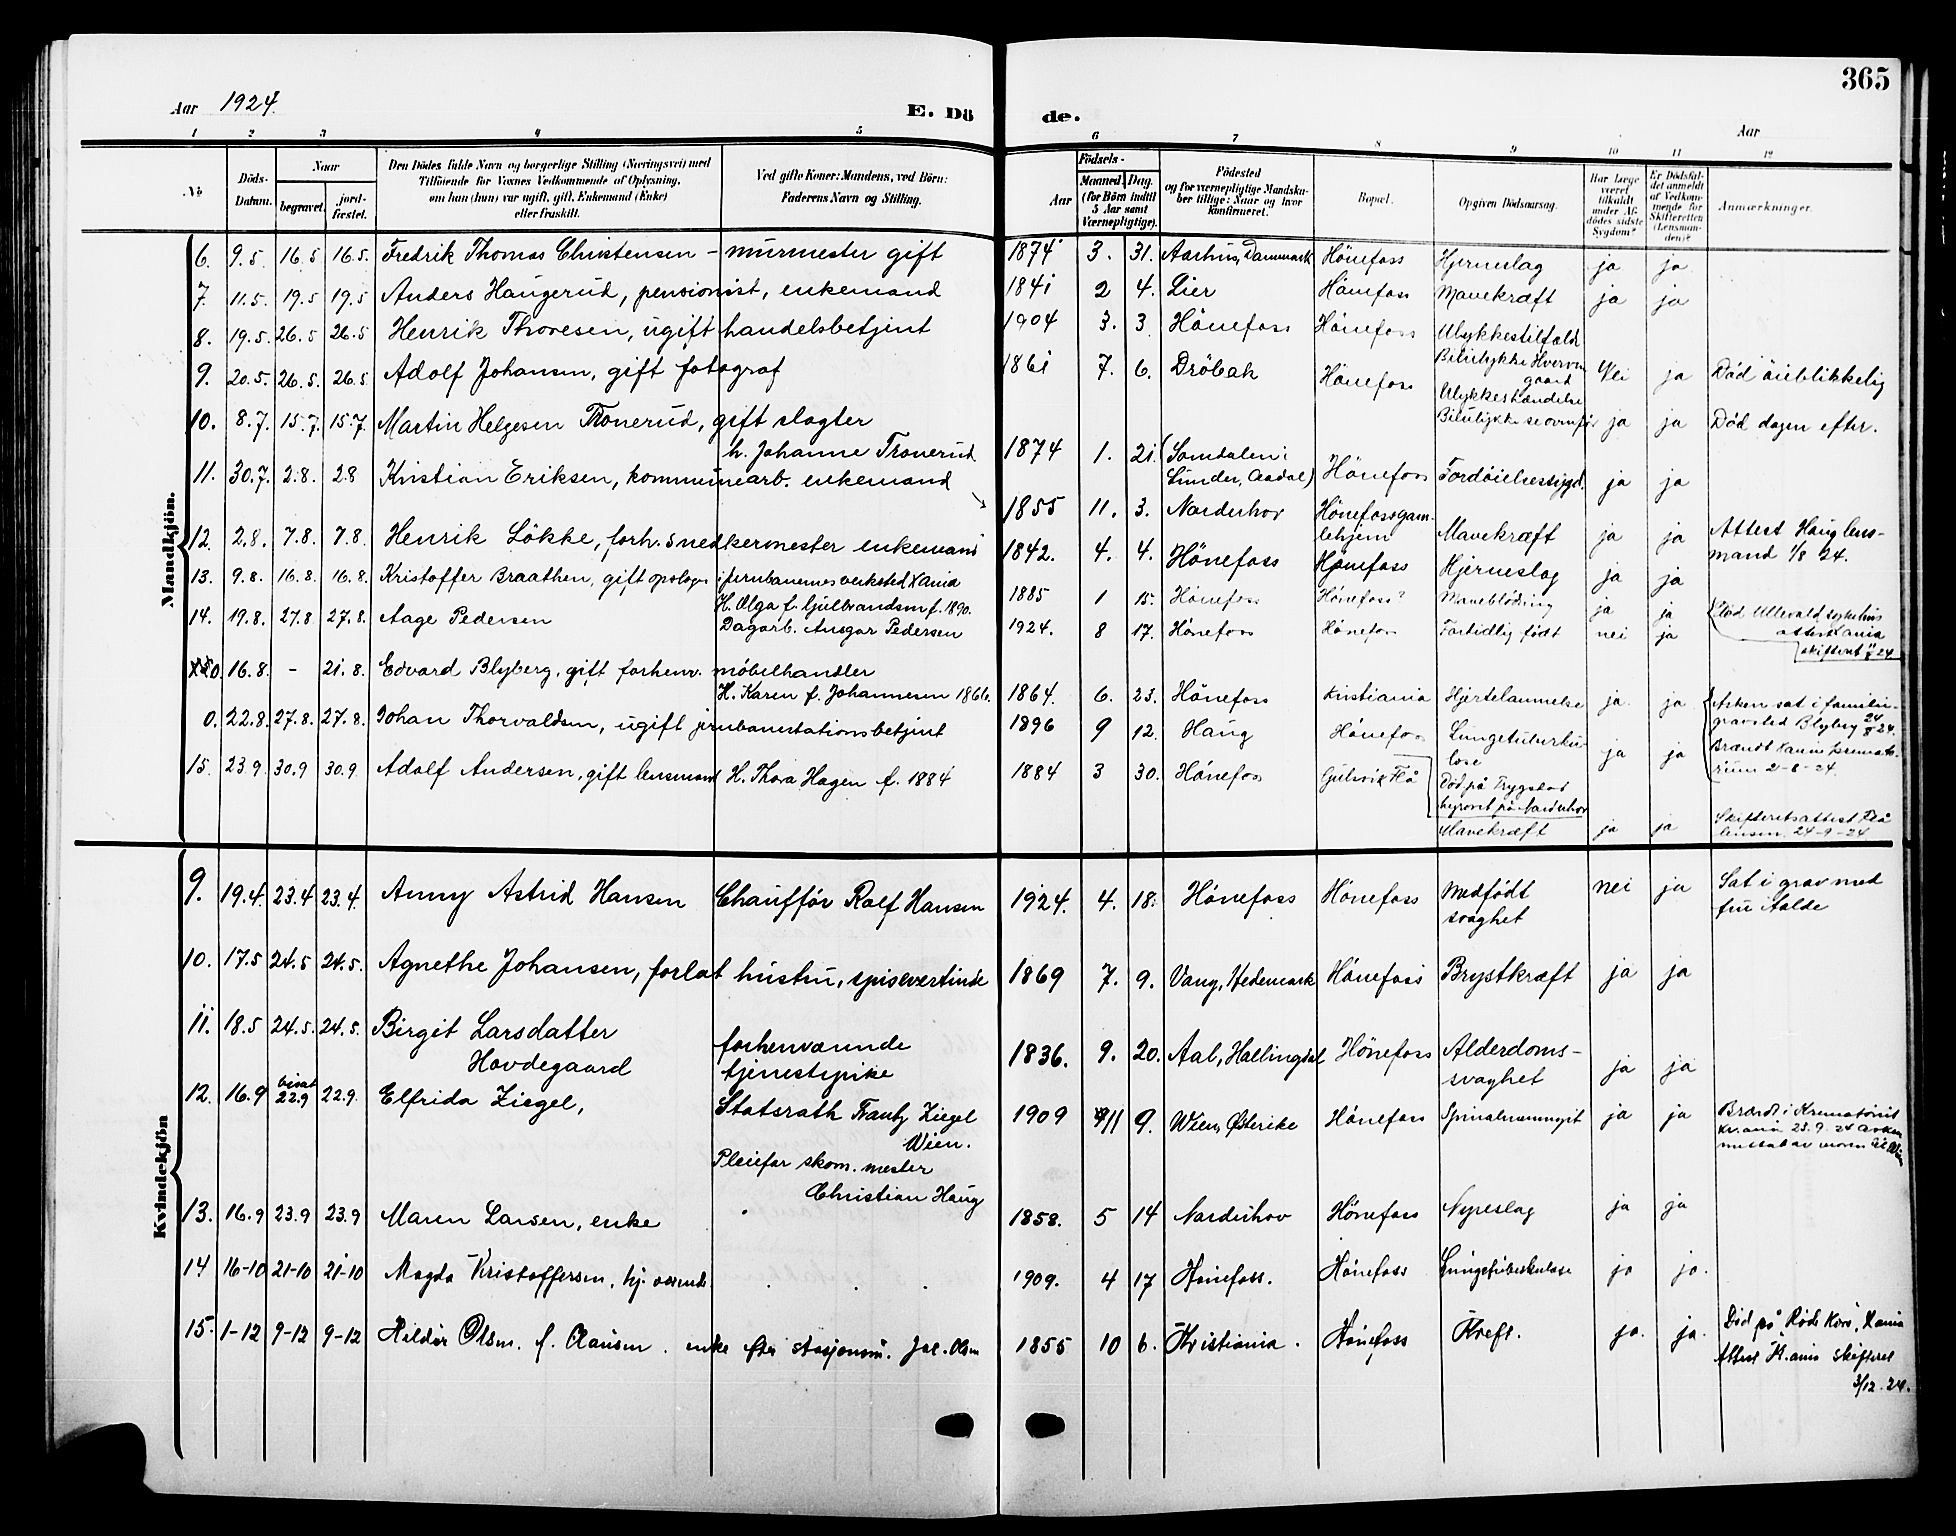 365
Aar 1924. E. Dö de. Aar
1 2 3 4 5 6 7 8 9 10 11 12
No
Döds-Datum.
Naar
begravet.
jord-fæstet.
Den Dödes fulde Navn og borgerlige Stilling (Næringsvei) med
Tilföiende for Voxnes Vedkommende af Oplysning,
om han (hun) var ugift, gift, Enkemand (Enke)
eller fraskilt.
Ved gifte Koner: Mandens, ved Börn:
Faderens Navn og Stilling.
Aar
Födsels-
Maaned. Dag.
(for Börn indtil
5 Aar samt
Værnepligtige).
Födested
og for værnepligtige Mandsku-
ber tillige: Naar og hvor
konfirmeret.
Bopæl.
Opgiven Dödsaarsag.
Har Læge
været
tilkaldt
under Af-
dödes sidste
Sygdom?
Er Dödsfal-
det anmeldt
af Vedkom-
mende for
Skifteretten
(Lensman-
den)?
Anmærkninger.
Mandkjön.
6. 9.5. 16.5 16.5. Fredrik Thomas Christensen – murmester gift 1874 3. 31. Aarhus, Danmark Hönefoss Hjerneslag ja ja
7. 11.5. 19.5 19.5 Anders Haugerud, pensionist, enkemand 1841 2 4. Lier Hönefoss Mavekræft ja ja
8. 19.5. 26.5 26.5 Henrik Thoresen, ugift handelsbetjent 1904 3. 3 Hönefoss Hönefoss Ulykkestilfæld
Bilulykke Hvervengaard
9. 20.5. 26.5. 26.5. Adolf Johansen, gift fotograf 1861 7. 6. Dröbak Hönefoss Ulykkeshændelse Nei ja Död öieblikkelig
Bilulykke se ovenfor ja ja Död dagen efter.
10. 8.7. 15.7. 15.7. Martin Helgesen Tronerud, gift slagter
h. Johanne Tronerud 1874 1. 21. (Somdalen i
Lunder, Aadal) Hönefoss Fordöielsessygd. ja ja
11. 30.7. 2.8. 2.8 Kristian Eriksen, kommunearb. enkemand 1855 11. 3. Norderhov Hönefossgam-
lehjem Mavekræft ja ja Attest Haug lens-
mand 1/8 24.
12. 2.8. 7.8. 7.8. Henrik Lökke, forh. snedkermester enkemand 1842. 4. 4. Hönefoss Hönefoss Hjerneslag ja ja
13. 9.8. 16.8. 16.8. Kristoffer Braathen, gift i jernbanenes verksted Xania
H. Olga f. Gulbrandsen f. 1890. 1885 1 15. Hönefoss Hönefoss? Maveblödning ja ja Död Ullevold sykehus
attest Xania
skifteret
14. 19.8. 27.8 27.8. Aage Pedersen Dagarb. Ansgar Pedersen 1924. 8 17. Hönefoss Hönefoss Fortidlig födt nei ja
0. 16.8. - 21.8. Edvard Blyberg, gift forhenv. möbelhandler
H. Karen f. Johannesen 1866. 1864. 6. 23. Hönefoss Kristiania Hjertelammelse ja ja Asken sat i familie-
gravsted Blyberg 24/8 24.
Brændt Xania kremato-
rium 21-8-24.
0. 22.8. 27.8. 27.8. Johan Thorvaldsen, ugift jernbanestationsbetjent 1896 9 12. Haug Hönefoss Lungetuberku-
lose ja ja
15. 23.9. 30.9 30.9. Adolf Andersen, gift lensmand H. Thora Hagen f. 1884 1884 3 30. Hönefoss Gulsvik Flå Död på Trygstad
begravet på Norderhov
Mavekræft ja ja Skifteretsattest Flå
lensm. 24-9-24
Kvindekjön
9. 19.4. 23.4 23.4. Anny Astrid Hansen Chaufför Rolf Hansen 1924. 4. 18. Hönefoss Hönefoss Medfödt
svaghet nei ja Sat i grav med
fru
10. 17.5 24.5 24.5. Agnethe Johansen, forlat hustru, spisevertinde 1869 7. 9. Vang, Hedemark Hönefoss Brystkræft ja ja
11. 18.5 24.5. 24.5. Birgit Larsdatter
Hovdegaard forhenværende
tjenestepike 1836. 9. 20. Aal, Hallingdal Hönefoss Alderdoms-
svaghet ja ja
12. 16.9 bisat
22.9 22.9. Elfrida Ziegel, Statsrath Frantz Ziegel
Wien.
Pleiefar skom. mester
Christian Haug 1909 11 9. Wien, Østerike Hönefoss ja ja Brændt i Krematoriet
Kr.ania 23.9.24 asken
13. 16.9 23.9 23.9 Maren Larsen, enke 1858. 5 14 Norderhov Hönefoss Nyreslag ja ja
14 16-10 21-10 21-10 Magda Kristoffersen, hj. værende 1909. 4 17 Hönefoss. Hönefoss Lungetuberkulose ja ja.
15. 1-12 9-12 9-12 Hildur Olsen. f. Clausen. enke efter stasjonsm. Joh. Olsen 1855 10 6. Kristiania. Hönefoss Kreft. ja. ja. Död på "Röde Kors", Kania
Attest Kr.ania skifteret
3/12.24.